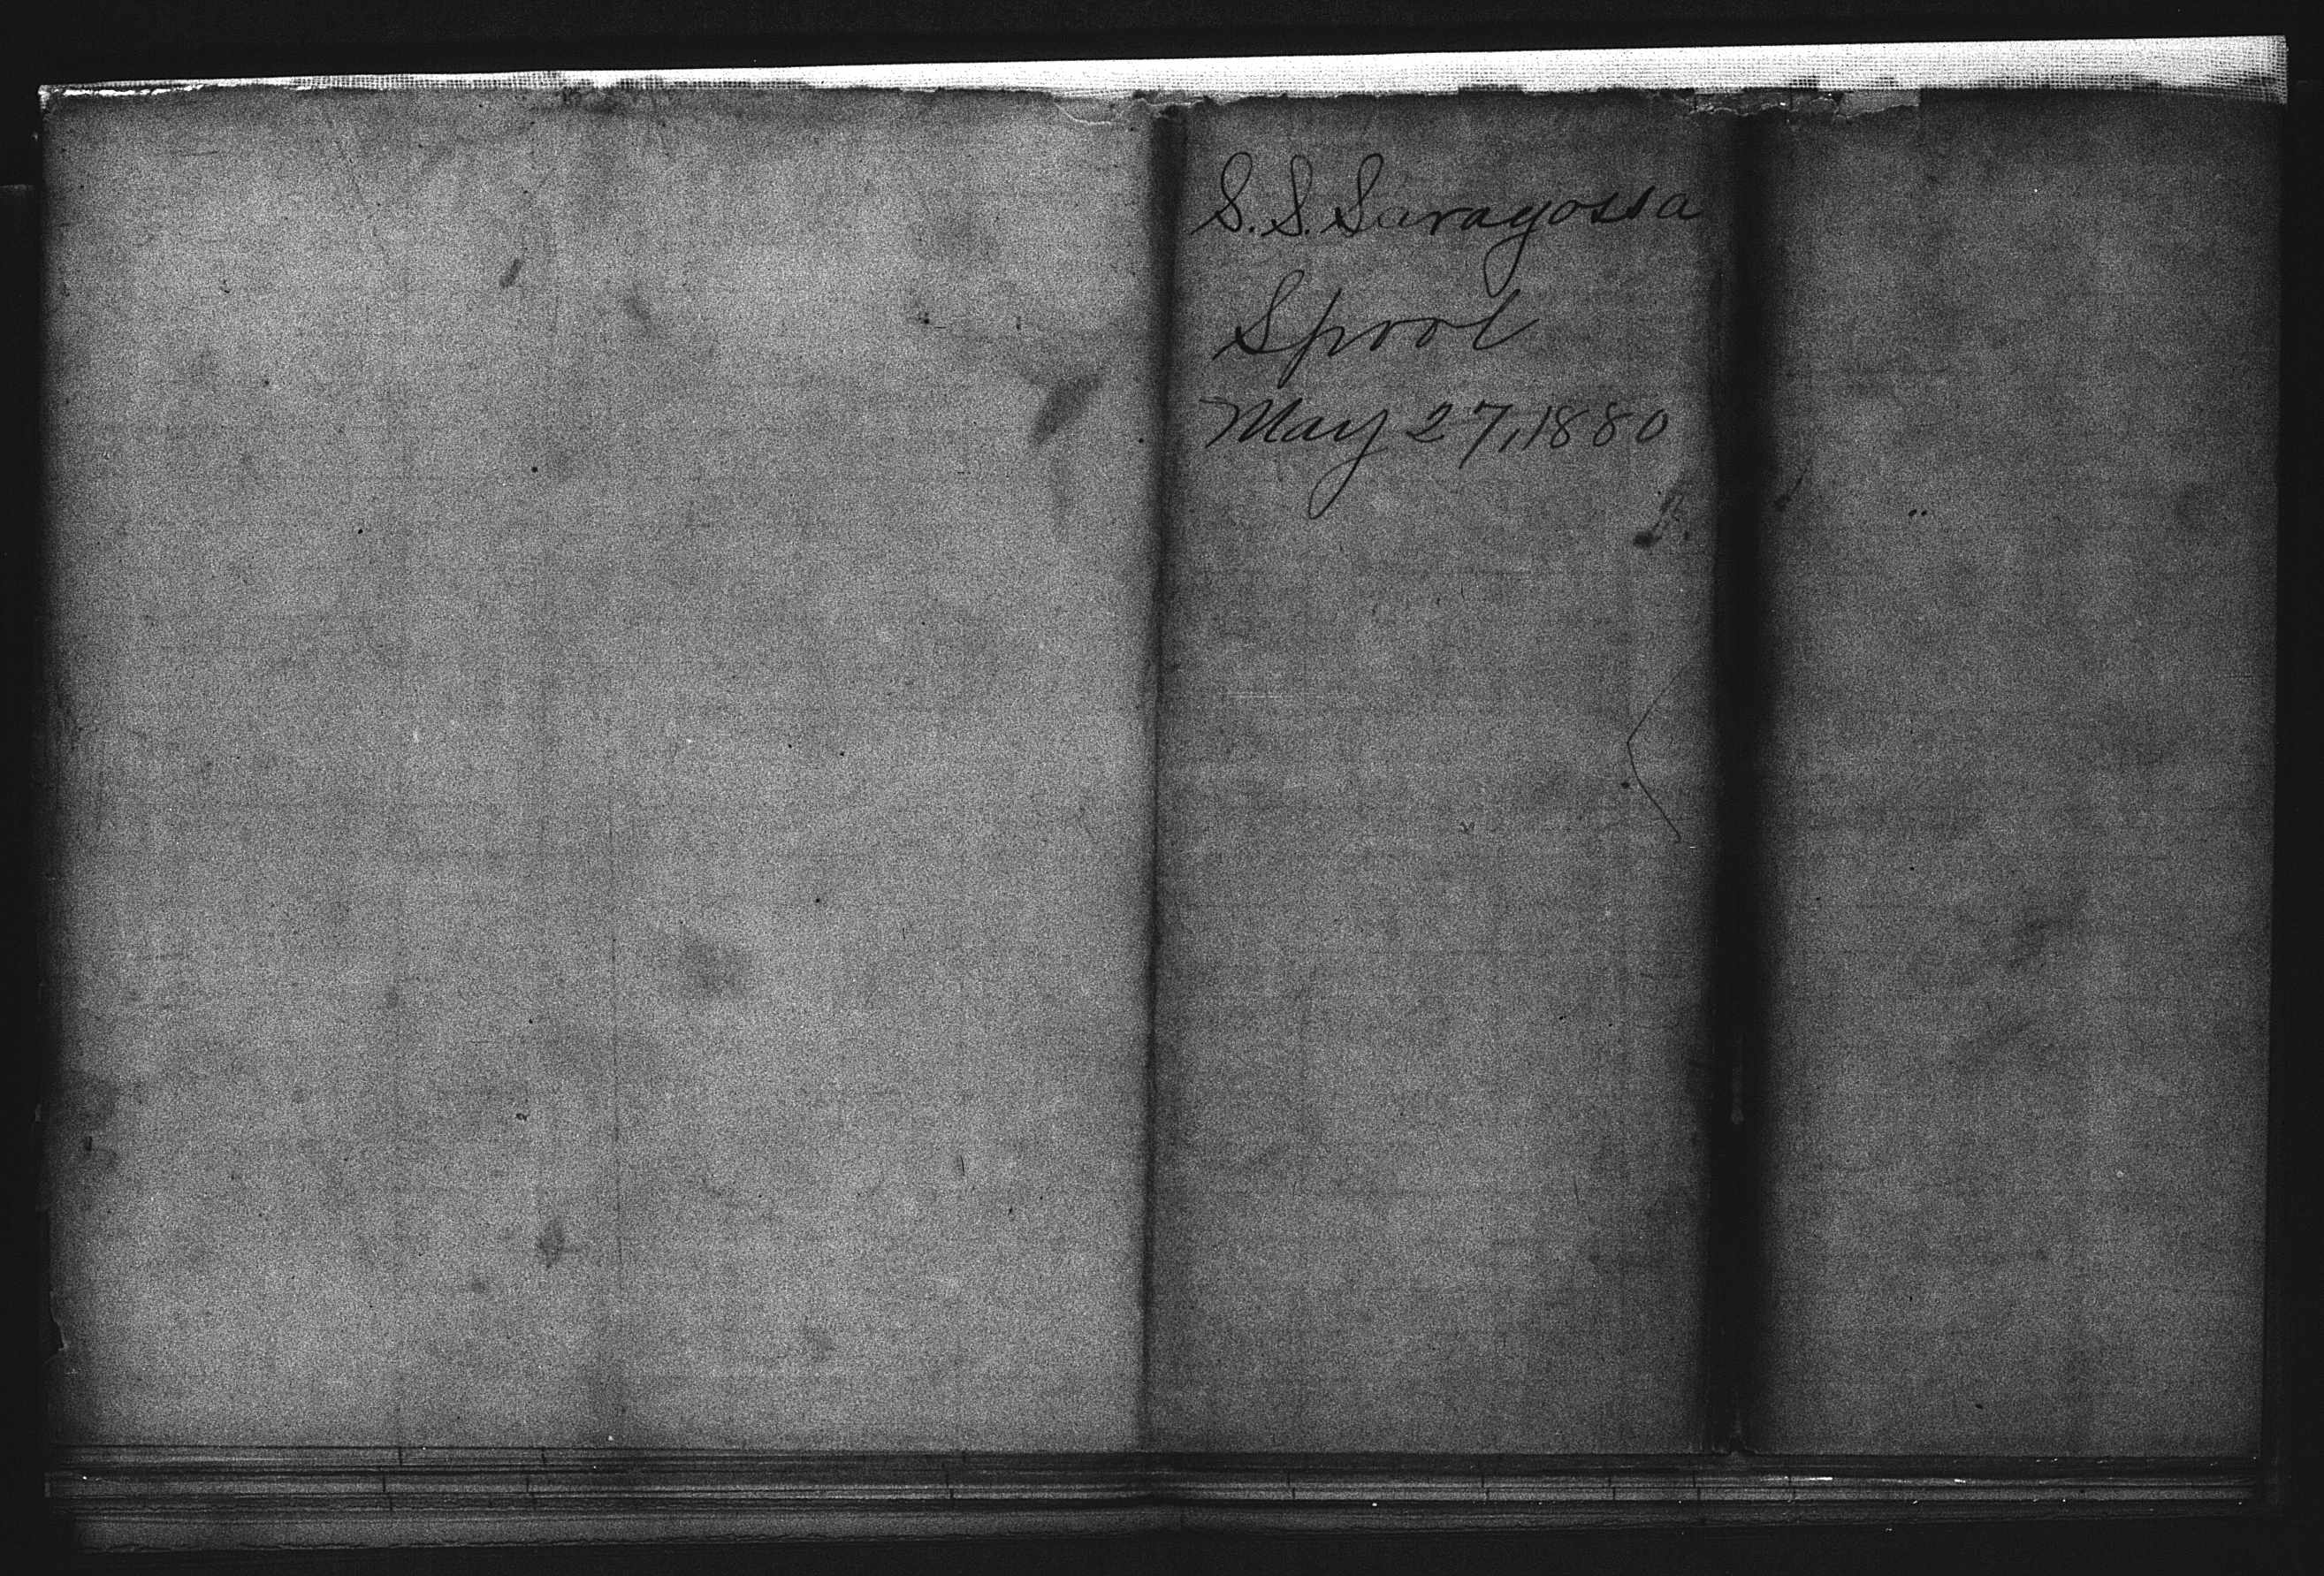 S.S. Saragossa
Spool
May 27, 1880